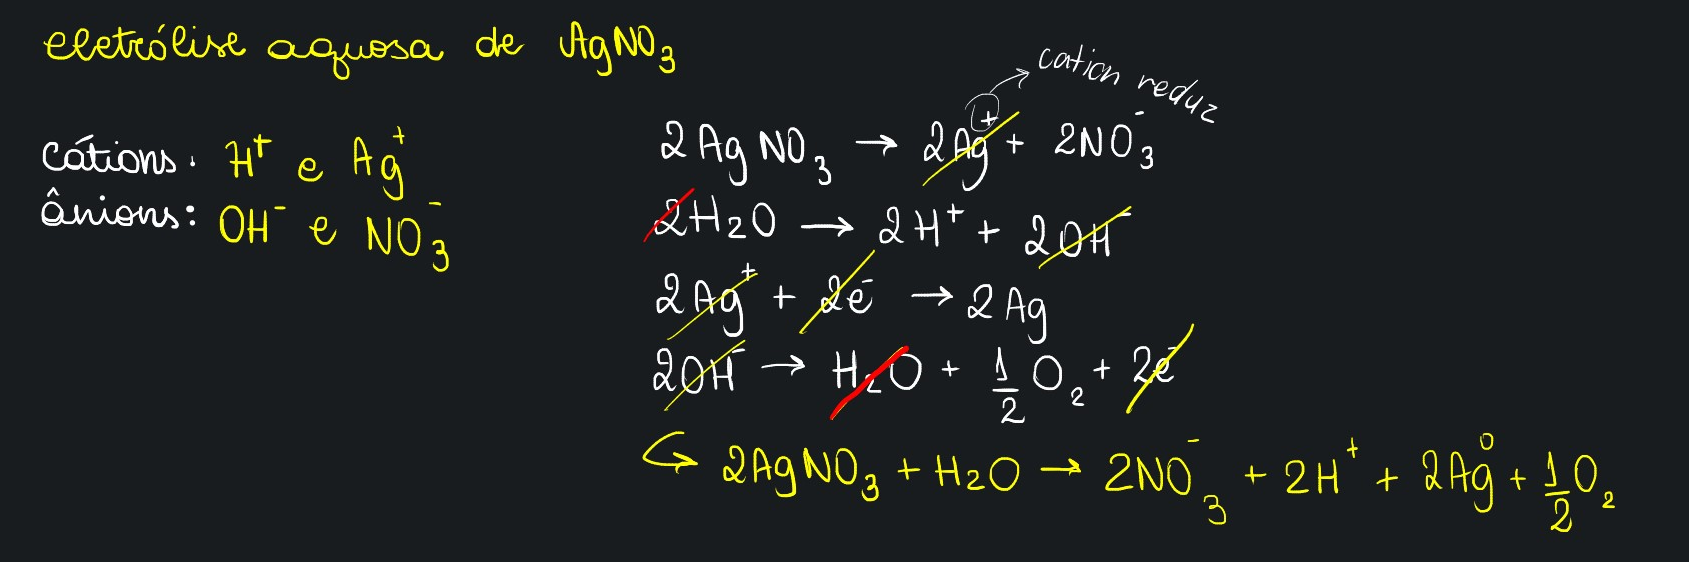 eletrólise aquosa de AgNO₃
cátions: H⁺ e Ag⁺
ânions: OH⁻ e NO₃⁻
cation reduz
2AgNO₃ → 2Ag⁺ + 2NO₃⁻
2H₂O → 2H⁺ + 2OH⁻
2Ag⁺ + 2e⁻ → 2Ag
2OH⁻ → H₂O + 1/2 O₂ + 2e⁻
↪ 2AgNO₃ + H₂O → 2NO₃⁻ + 2H⁺ + 2Ag⁰ + 1/2 O₂